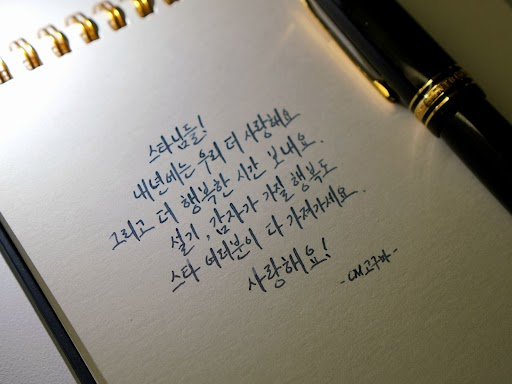 스타님들!
내년에는 우리 더 사랑해요
그리고 더 행복한 시간 보내요.
설기, 감자가 가질 행복도
스타 여러분이 다 가져가세요.
사랑해요!
-CM고구마-